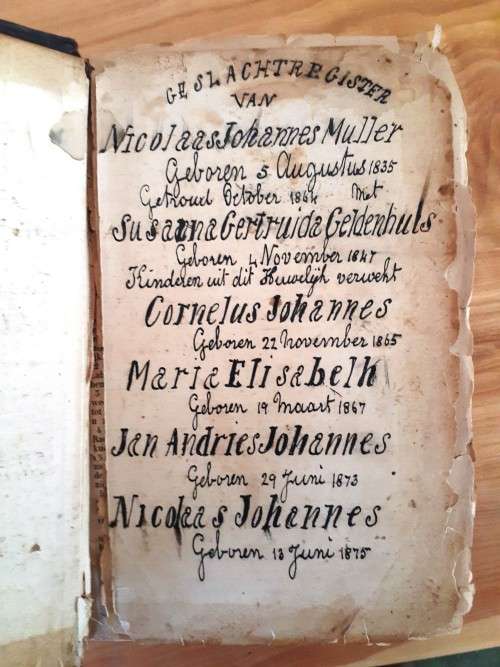 GESLACHTREGISTER
VAN
Nicolaas Johannes Muller
Geboren 5 Augustus 1835
Getroud October 1864 Met
Susanna Gertruida Geldenhuls
Geboren 4 November 1847
Kinderen uit dit Huwelijk verwekt
Cornelus Johannes
Geboren 22 november 1865
Maria Elisabelh
Geboren 19 maart 1867
Jan Andries Johannes
Geboren 29 Juni 1873
Nicolaas Johannes
Geboren 13 Juni 1875